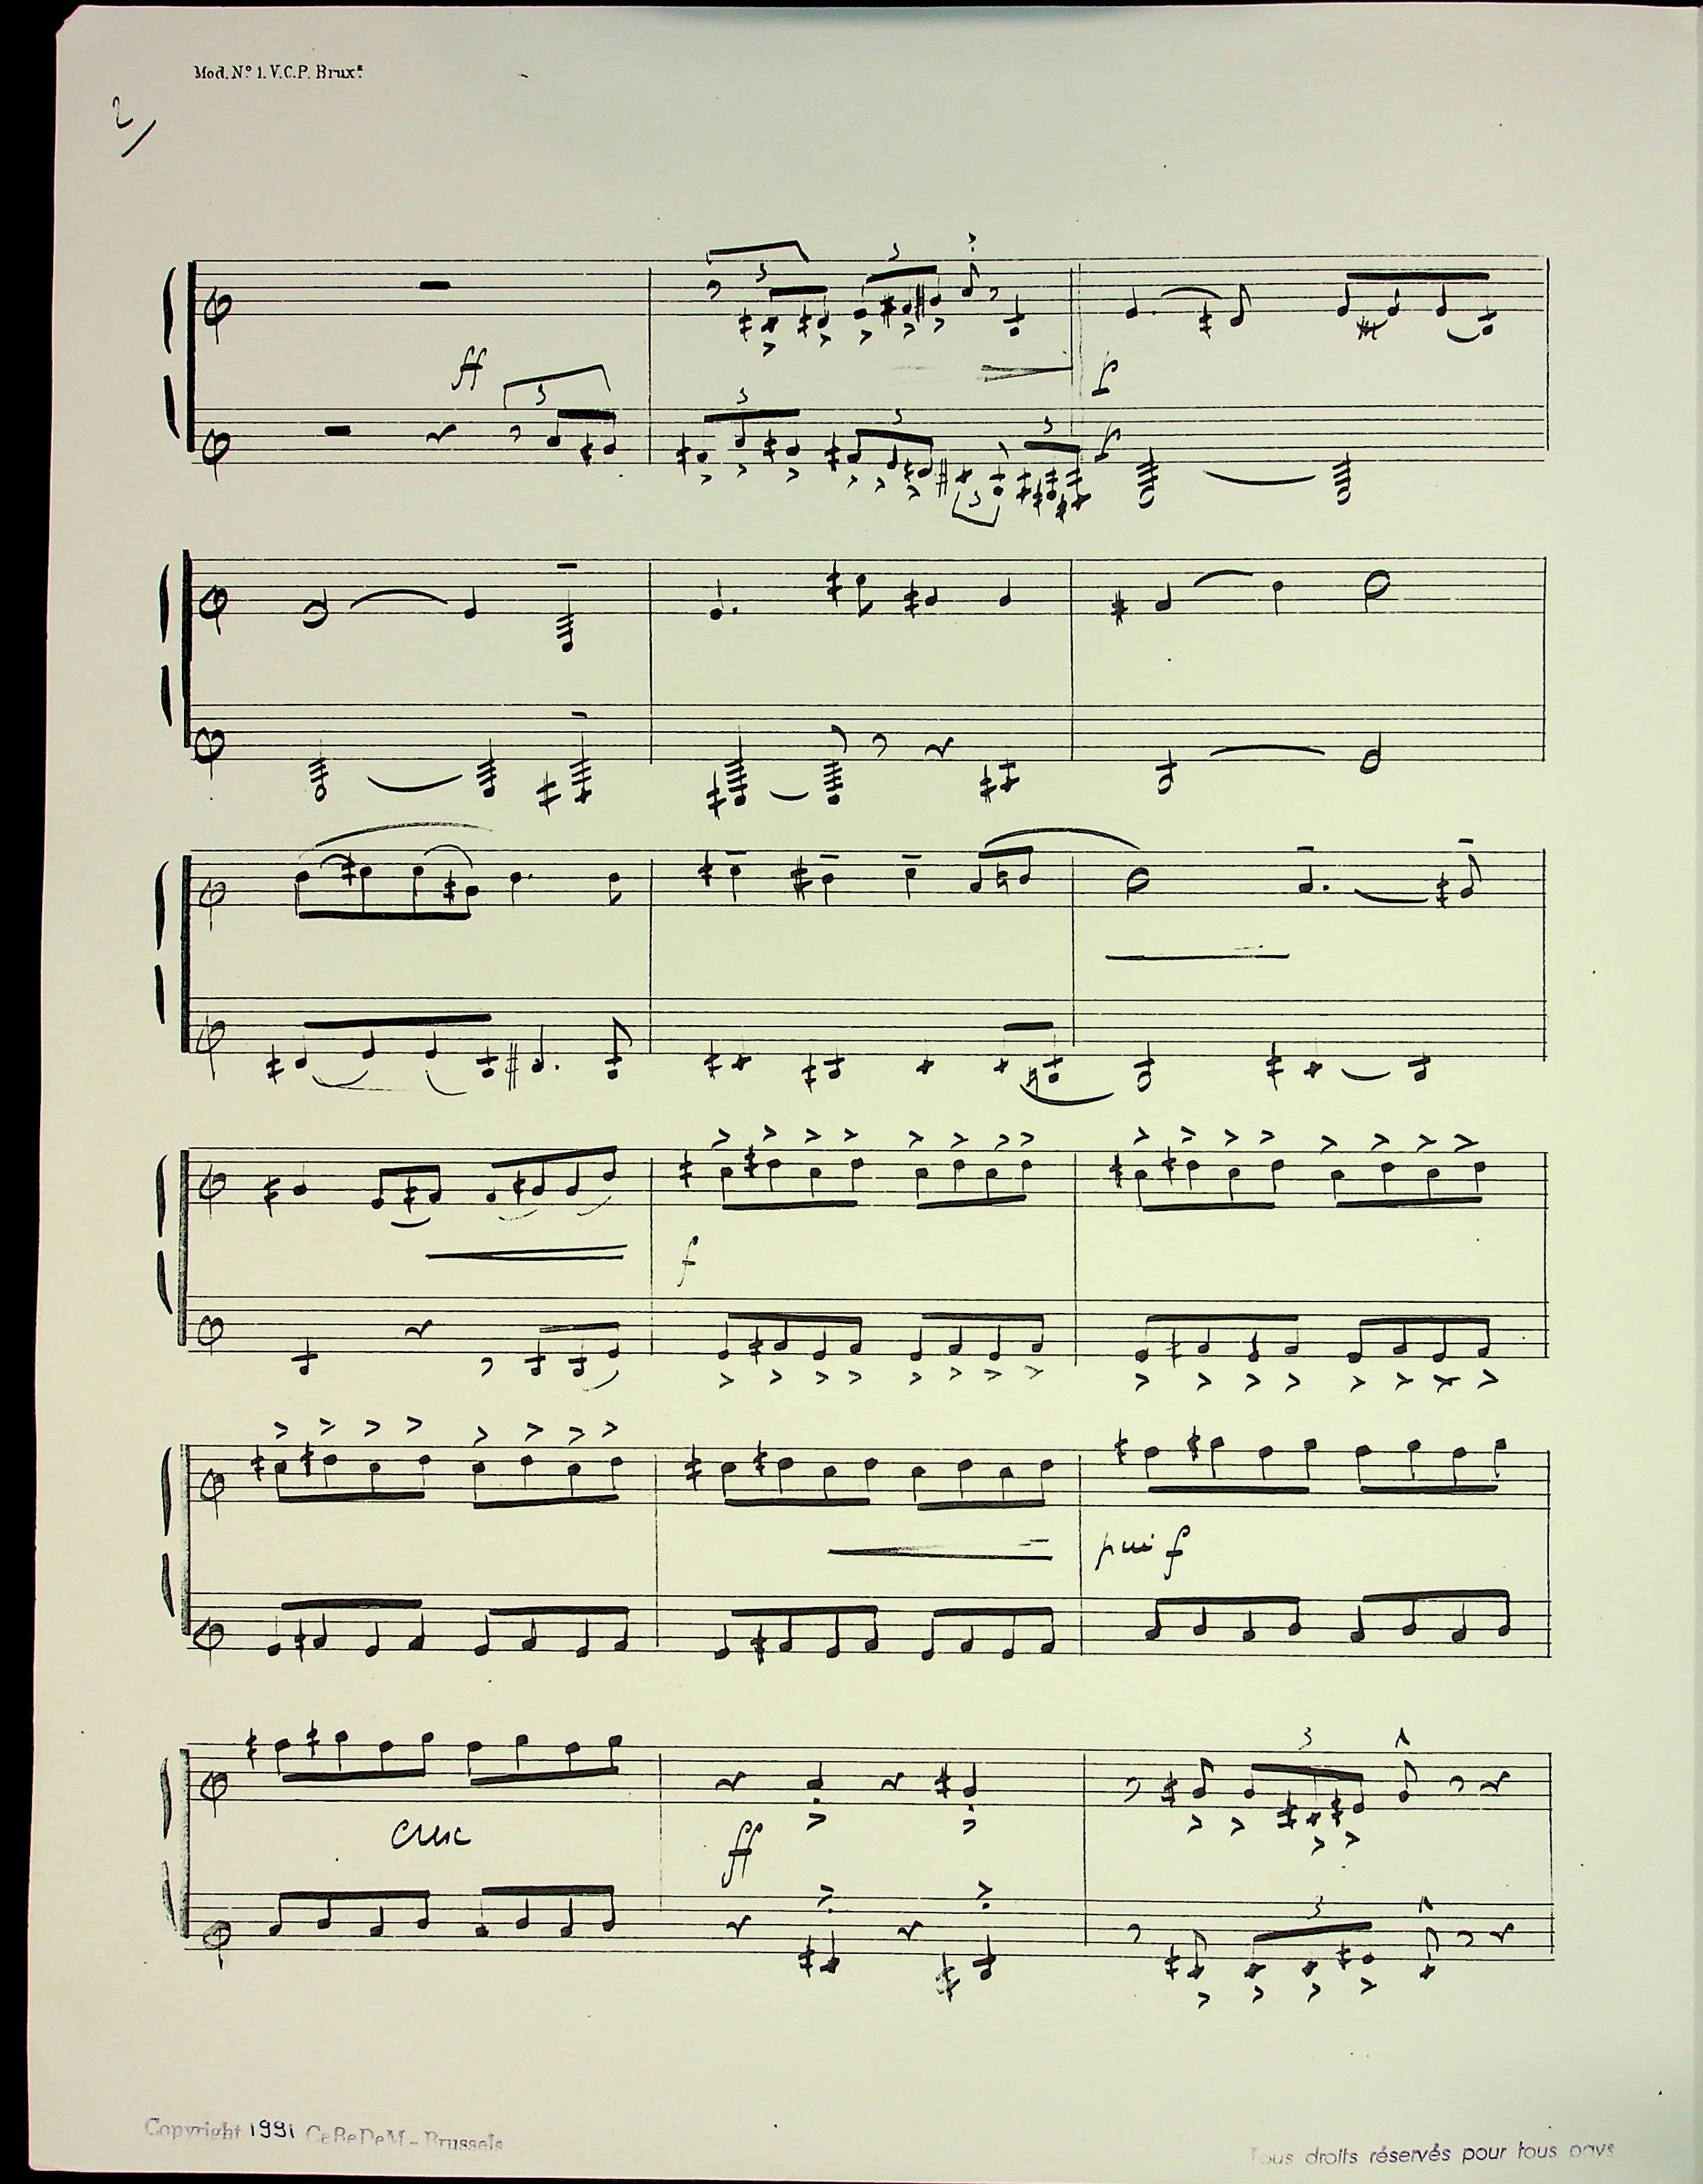 Mod. Nº 1. V.C.P. Bruxˢ.
2/
3
3
ff
3
3
3
3
3
p
p
f
piu f
3
cresc
ff
3
Copyright 1991 CeBeDeM - Brussels
Tous droits réservés pour tous pays